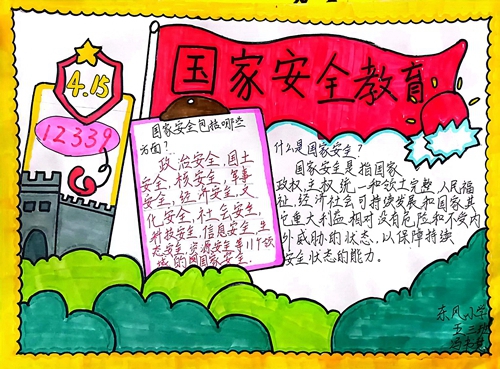 国家安全教育
4.15
12339
国家安全包括哪些
方面?
政治安全,国土
安全,核安全,军事
安全,经济安全,文
化安全,社会安全,
科技安全,信息安全,生
态安全,资源安全等11个领
域的国家安全.
什么是国家安全?
国家安全是指国家
政权,主权,统一和领土完整,人民福
祉,经济社会可持续发展和国家其
它重大利益相对没有危险和不受内
外威胁的状态,以保障持续
安全状态的能力。
东风小学
五三班